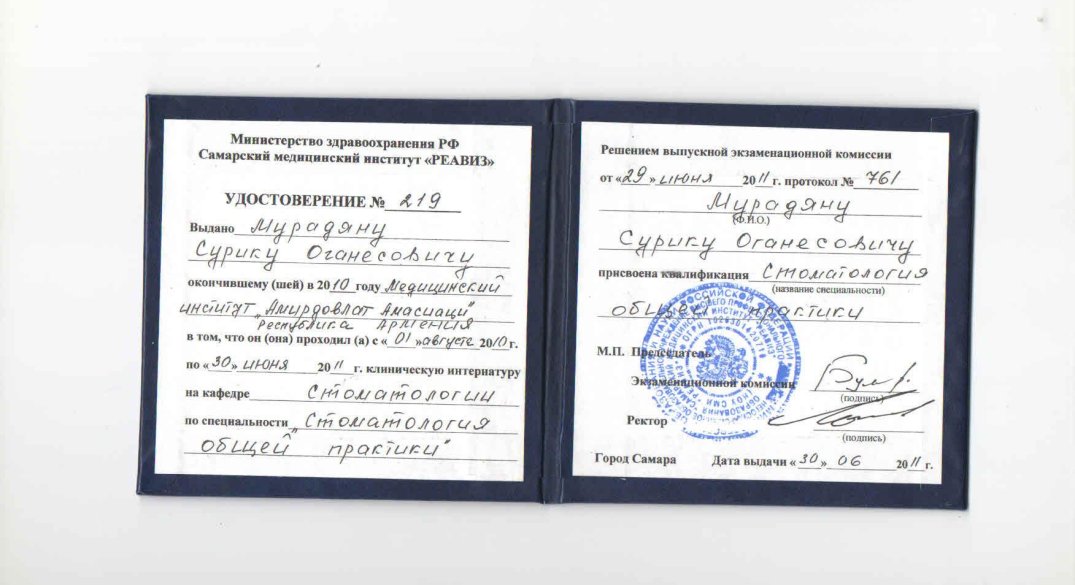 Министерство здравоохранения РФ
Самарский медицинский институт «РЕАВИЗ»
УДОСТОВЕРЕНИЕ № 219
Выдано Мурадяну
Сурику Оганесовичу
окончившему (шей) в 2010 году Медицинский
институт „Амирдовлат Амасиаци"
Республика Армения
в том, что он (она) проходил (а) с «01» августа 2010 г.
по «30» июня 2011 г. клиническую интернатуру
на кафедре Стоматологии
по специальности „Стоматология
общей практики"
Решением выпускной экзаменационной комиссии
от «29» июня 2011 г. протокол № 761
Мурадяну
(Ф.И.О.)
Сурику Оганесовичу
присвоена квалификация Стоматология
(название специальности)
общей практики
М.П. Председатель
Экзаменационной комиссии
(подпись)
Ректор
(подпись)
Город Самара Дата выдачи «30» 06 2011 г.